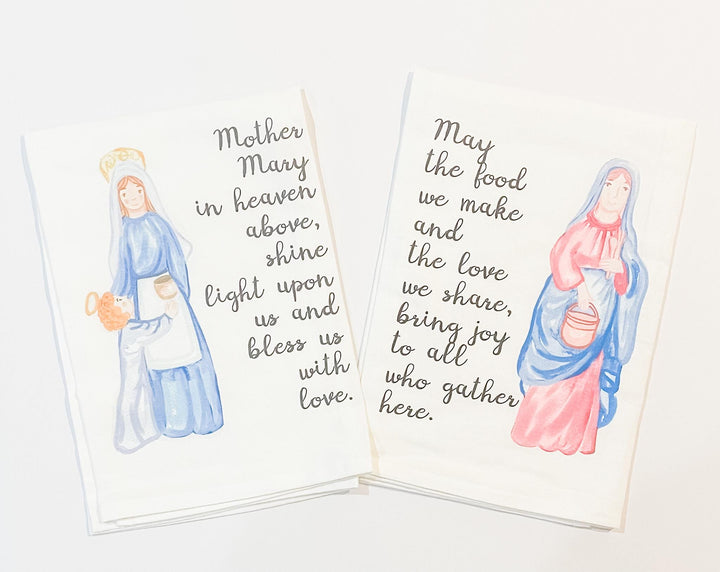 Mother
Mary
in heaven
above,
shine
light upon
us and
bless us
with
love.
May
the food
we make
and
the love
we share,
bring joy
to all
who gather
here.